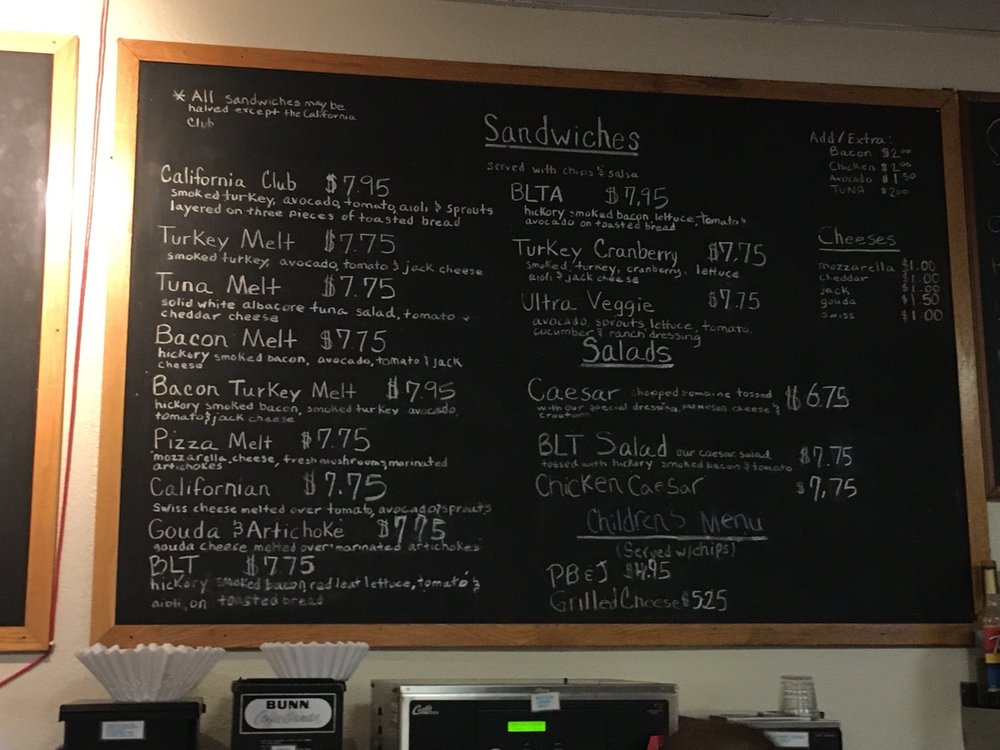 * All sandwiches may be
halved except the California
Club
Sandwiches
served with chips & salsa
California Club $7.95
smoked turkey, avocado, tomato, aioli & sprouts
layered on three pieces of toasted bread
Turkey Melt $7.75
smoked turkey, avocado, tomato & jack cheese
Tuna Melt $7.75
solid white albacore tuna salad, tomato &
cheddar cheese
Bacon Melt $7.75
hickory smoked bacon, avocado, tomato & jack
cheese
Bacon Turkey Melt $7.95
hickory smoked bacon, smoked turkey avocado,
tomato & jack cheese
Pizza Melt $7.75
mozzarella cheese, fresh mushrooms, marinated
artichokes
Californian $7.75
Swiss cheese melted over tomato, avocado & sprouts
Gouda & Artichoke $7.75
gouda cheese melted over marinated artichokes
BLT $7.75
hickory smoked bacon, red leaf lettuce, tomato &
aioli, on toasted bread
BLTA $7.95
hickory smoked bacon, lettuce, tomato &
avocado on toasted bread
Turkey Cranberry $7.75
smoked turkey, cranberry, lettuce
aioli & jack cheese
Ultra Veggie $7.75
avocado, sprouts, lettuce, tomato,
cucumber & ranch dressing
Salads
Caesar chopped romaine tossed $6.75
with our special dressing, parmesan cheese &
croutons
BLT Salad our caesar salad $7.75
tossed with hickory smoked bacon & tomato
Chicken Caesar $7.75
Children's Menu
(Served w/chips)
PB & J $4.95
Grilled Cheese $5.25
Add / Extra:
Bacon $2.00
Chicken $2.00
Avocado $1.50
TUNA $2.00
Cheeses
mozzarella $1.00
cheddar $1.00
jack $1.00
gouda $1.50
swiss $1.00
BUNN